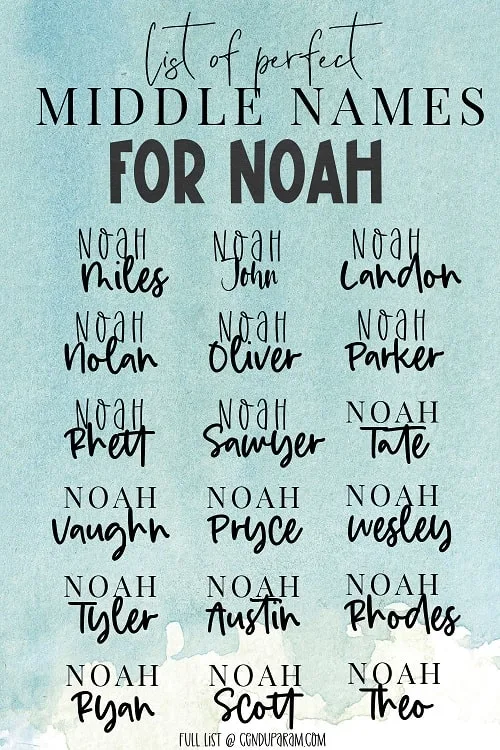 list of perfect
MIDDLE NAMES
FOR NOAH
NOAH NOAH NOAH
Miles John Landon
NOAH NOAH NOAH
Nolan Oliver Parker
NOAH NOAH NOAH
Rhett Sawyer Tate
NOAH NOAH NOAH
Vaughn Pryce Wesley
NOAH NOAH NOAH
Tyler Austin Rhodes
NOAH NOAH NOAH
Ryan Scott Theo
FULL LIST @ CONDUPARAM.COM